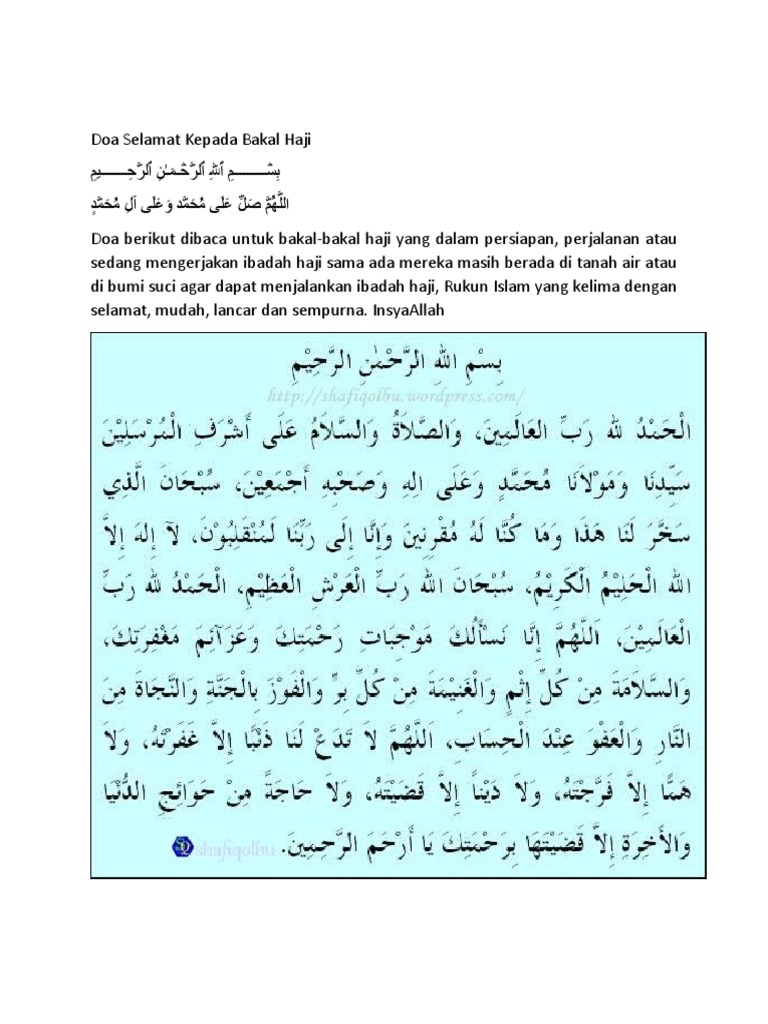 Doa Selamat Kepada Bakal Haji
بِسْــــــــمِ ٱللهِ ٱلرَّحْمَـٰنِ ٱلرَّحِــــــيمِ
اللَّهُمَّ صَلِّ عَلَى مُحَمَّد وَعَلَى آلِ مُحَمَّدٍ
Doa berikut dibaca untuk bakal-bakal haji yang dalam persiapan, perjalanan atau
sedang mengerjakan ibadah haji sama ada mereka masih berada di tanah air atau
di bumi suci agar dapat menjalankan ibadah haji, Rukun Islam yang kelima dengan
selamat, mudah, lancar dan sempurna. InsyaAllah
بِسْمِ اللهِ الرَّحْمٰنِ الرَّحِيْمِ
http://shafiqolbu.wordpress.com/
الْحَمْدُ لله رَبِّ العَالَمِينَ، وَالصَّلاَةُ وَالسَّلاَمُ عَلَى أَشْرَفِ الْمُرْسَلِيْنَ
سَيِّدِنَا وَمَوْلاَنَا مُحَمَّدٍ وَعَلَى الِهِ وَصَحْبِهِ أَجْمَعِيْنَ، سُبْحَانَ الَّذِي
سَخَّرَ لَنَا هَذَا وَمَا كُنَّا لَهُ مُقْرِنِينَ وَإِنَّا إِلَى رَبِّنَا لَمُنْقَلِبُوْنَ، لآ إِلهَ إِلاَّ
الله الْحَلِيْمُ الْكَرِيْمُ، سُبْحَانَ الله رَبِّ الْعَرْشِ الْعَظِيْمِ، الْحَمْدُ لله رَبِّ
الْعَالَمِيْنَ، اَللَّهُمَّ إِنَّا نَسْأَلُكَ مَوْجِبَاتِ رَحْمَتِكَ وَعَزَآئِمَ مَغْفِرَتِكَ،
وَالسَّلاَمَةَ مِنْ كُلِّ إِثْمٍ وَالْغَنِيْمَةَ مِنْ كُلِّ بِرٍّ وَالْفَوْزَ بِالْجَنَّةِ وَالنَّجَاةَ مِنَ
النَّارِ وَالْعَفْوَ عِنْدَ الْحِسَابِ، اَللَّهُمَّ لاَ تَدَعْ لَنَا ذَنْبًا إِلاَّ غَفَرْتَهُ، وَلاَ
هَمًّا إِلاَّ فَرَّجْتَهُ، وَلاَ دَيْناً إِلاَّ قَضَيْتَهُ، وَلاَ حَاجَةً مِنْ حَوَائِجِ الدُّنْيَا
وَالأَخِرَةِ إِلاَّ قَضَيْتَهَا بِرَحْمَتِكَ يَا أَرْحَمَ الرَّحِمِينَ.
SQ shafiqolbu